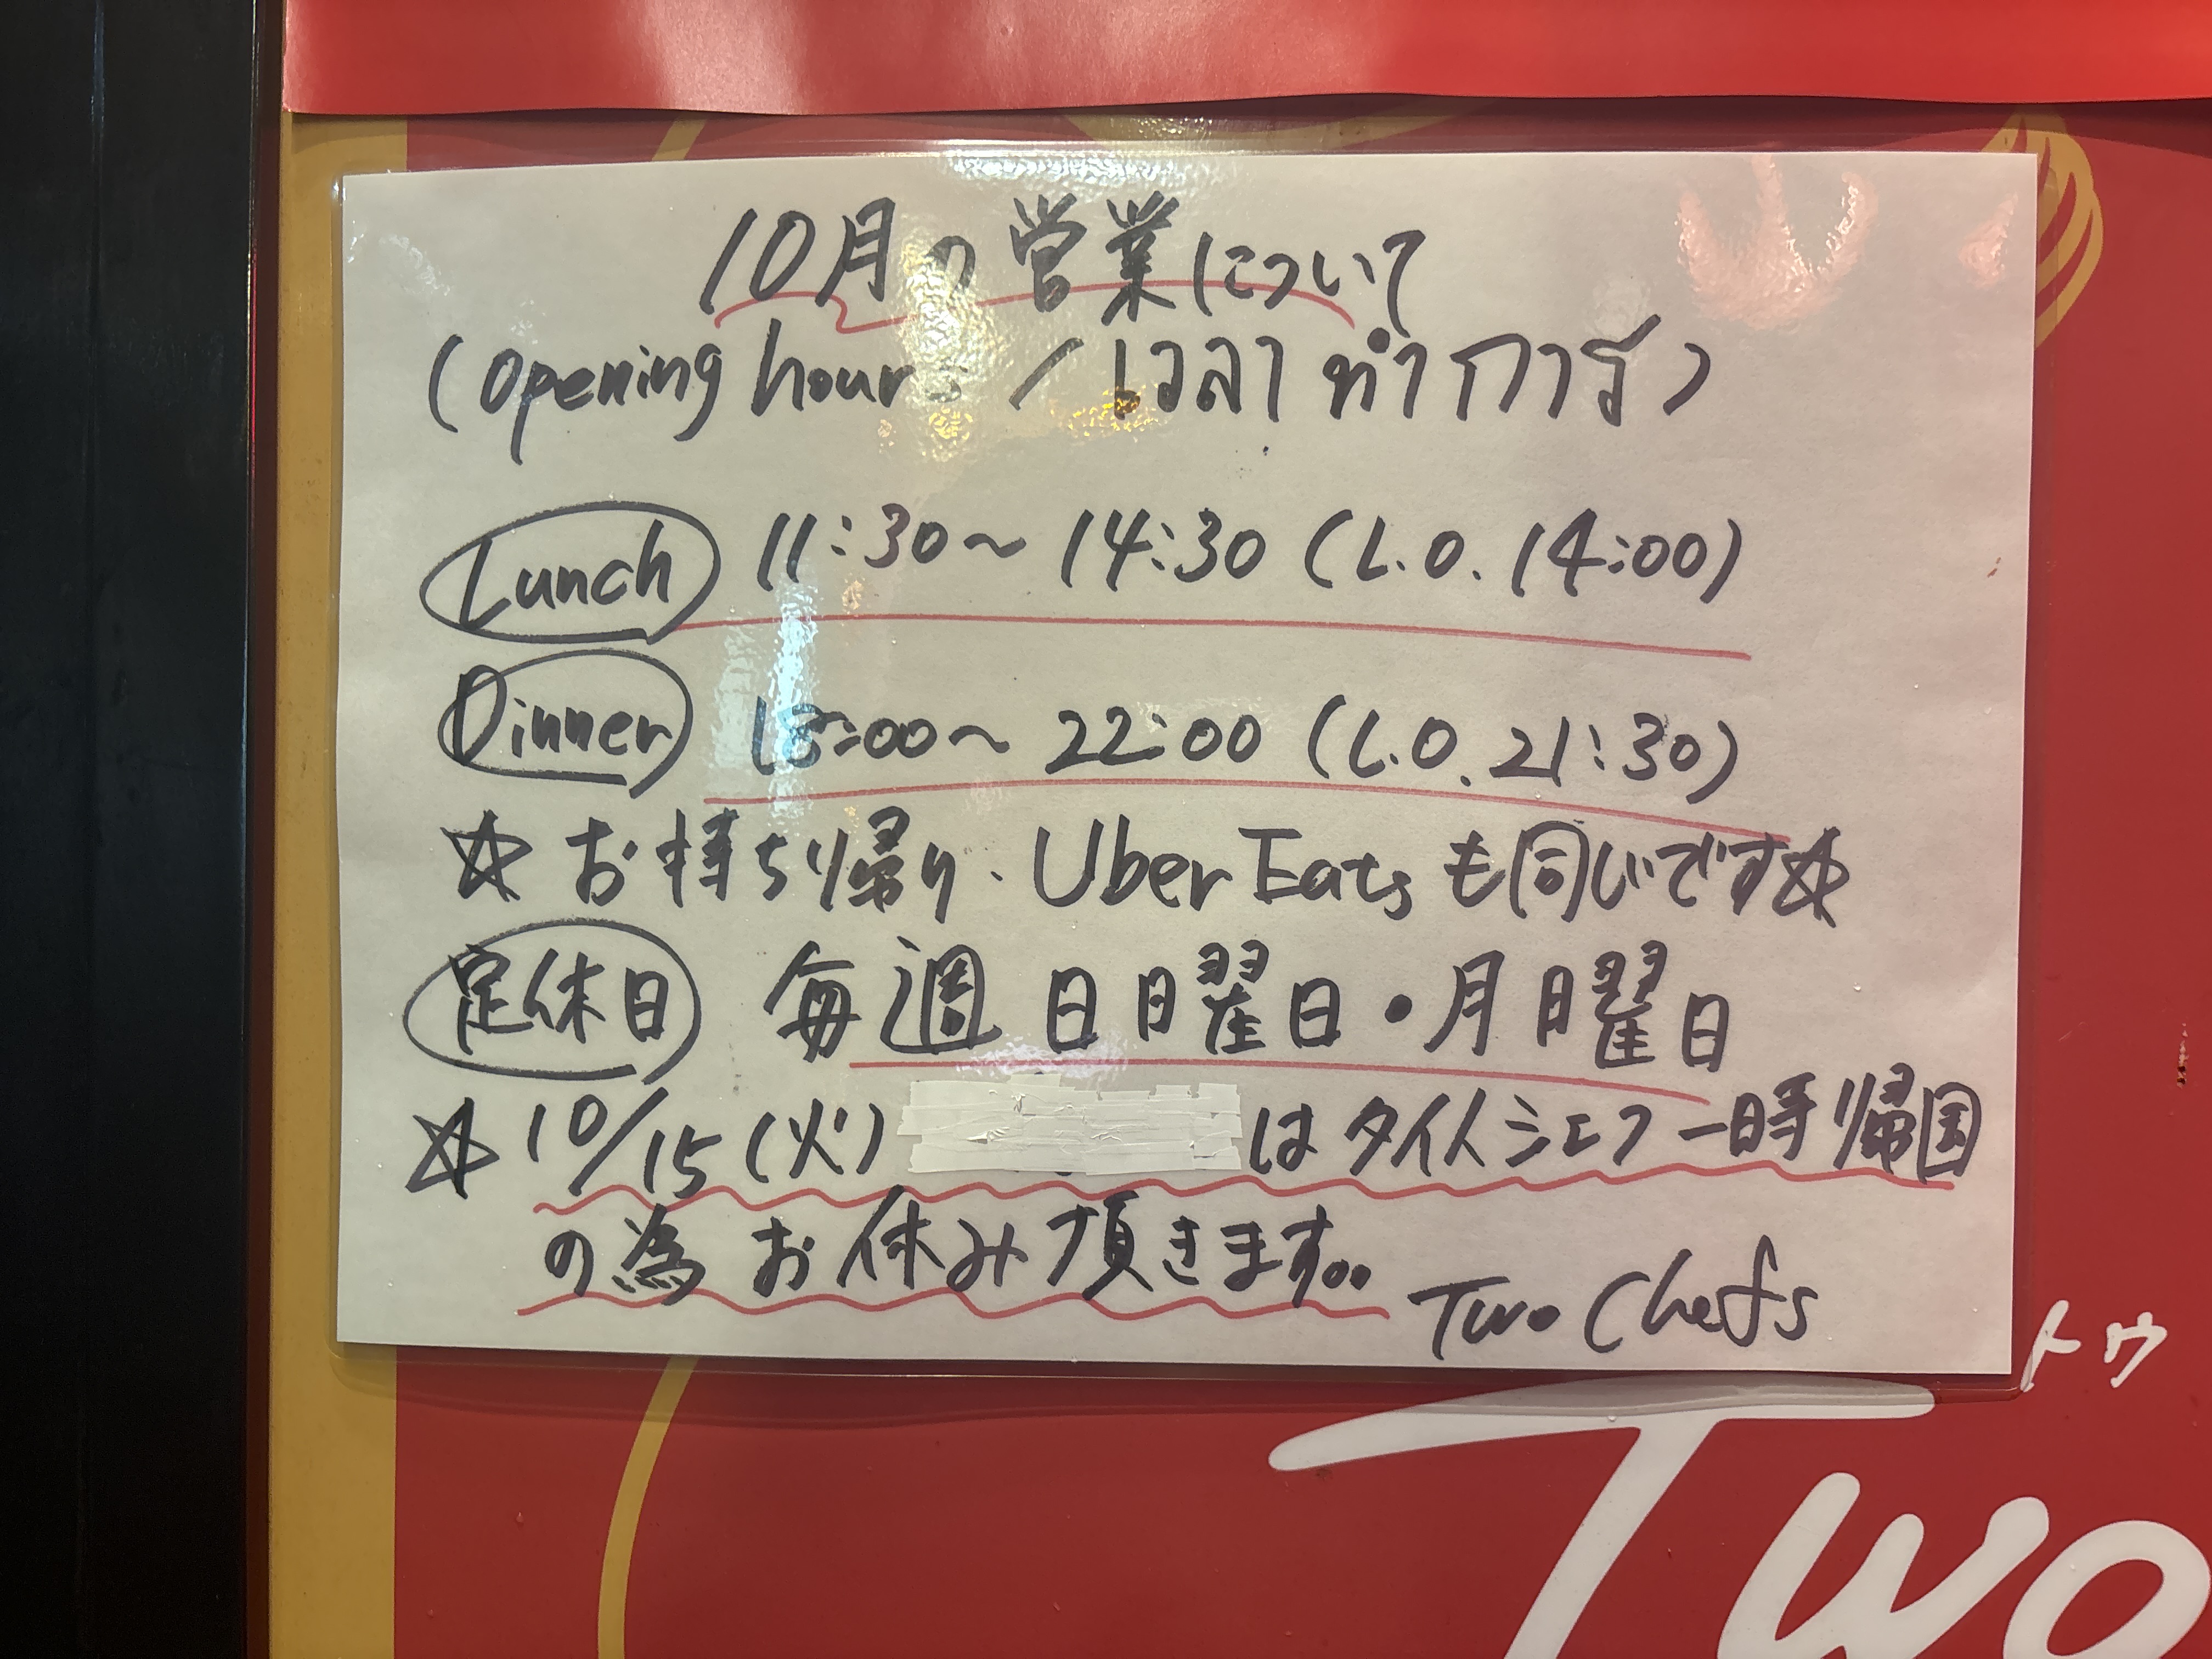 10月の営業について
(Opening hour / เวลา ทำการ)
Lunch 11:30~14:30 (L.O. 14:00)
Dinner :00~22:00 (L.O. 21:30)
☆お持ち帰り・Uber Eatsも同じです☆
定休日 毎週 日曜日・月曜日
☆10/15(火) はタイ人シェフ一時帰国
の為 お休み頂きます。
Two Chefs
トゥ
Two